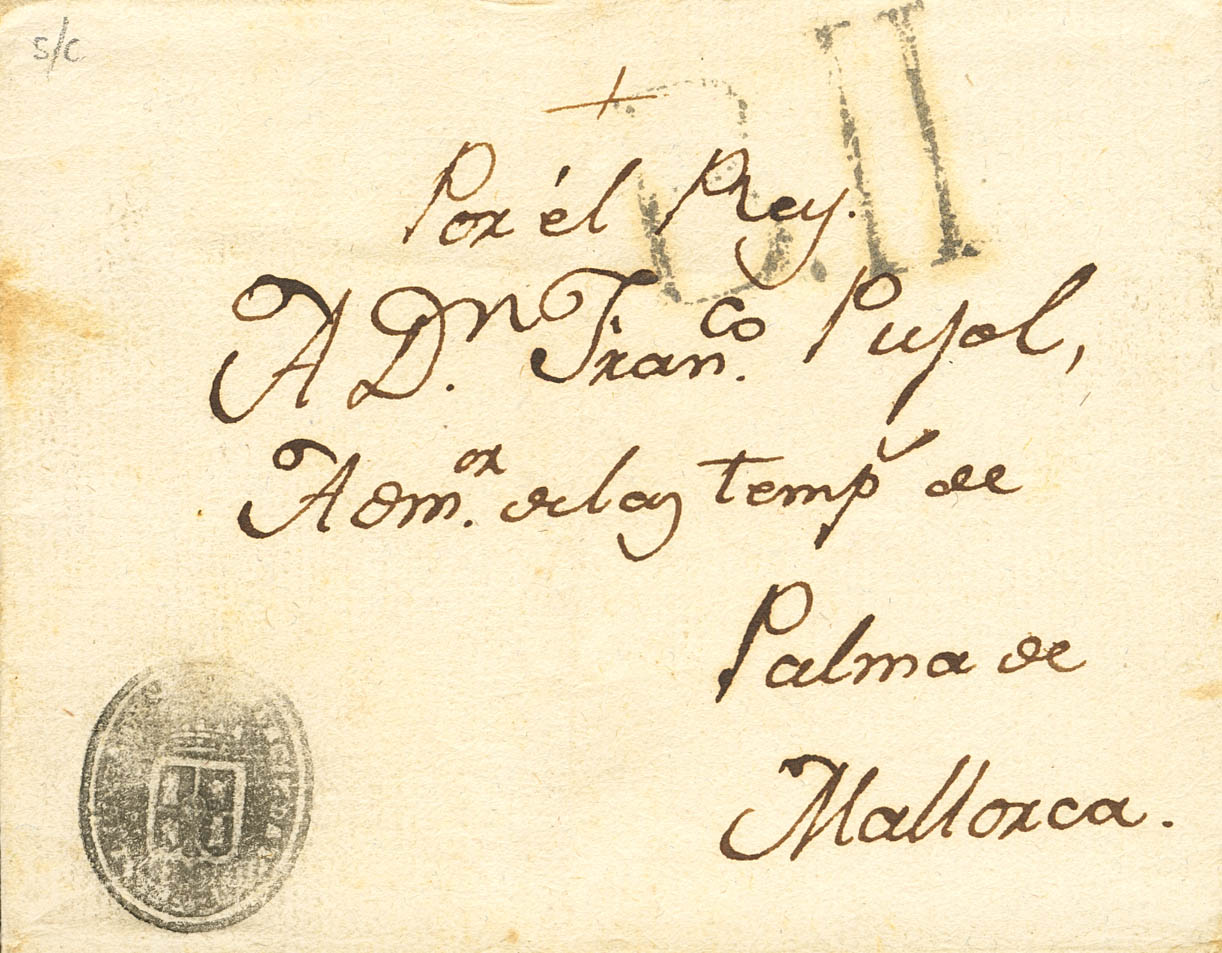 s/c
+
Por él Rey.
D.II
A Dⁿ. Tranᶜᵒ. Pujol,
Admᵒʳ. delas tempˢ de
Palma de
Mallorca.